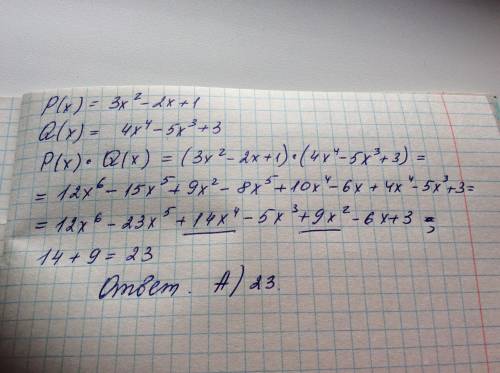 P(x) = 3x² - 2x + 1
Q(x) = 4x⁴ - 5x³ + 3
P(x) · Q(x) = (3x² - 2x + 1) · (4x⁴ - 5x³ + 3) =
= 12x⁶ - 15x⁵ + 9x² - 8x⁵ + 10x⁴ - 6x + 4x⁴ - 5x³ + 3 =
= 12x⁶ - 23x⁵ + 14x⁴ - 5x³ + 9x² - 6x + 3 ;
14 + 9 = 23
Ответ. А) 23.